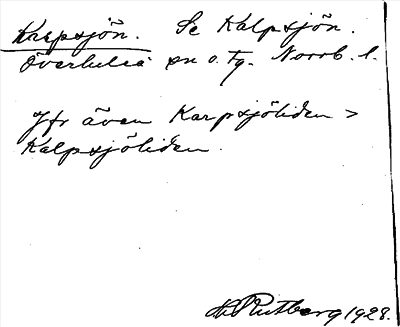 Karpsjön. Se Kalpsjön.
Överluleå sn o. tg. Norrb. l.
Jfr även Karpsjöliden >
Kalpsjöliden.
H Rutberg 1928.